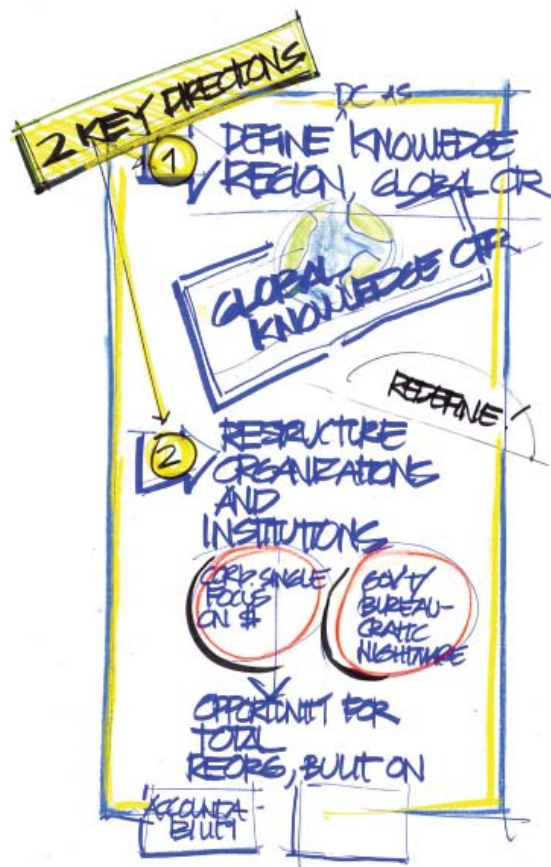 2 KEY DIRECTIONS
DC AS
1 DEFINE KNOWLEDGE
REGION, GLOBAL CTR
GLOBAL
KNOWLEDGE CTR
REDEFINE!
2 RESTRUCTURE
ORGANIZATIONS
AND
INSTITUTIONS
CORP. SINGLE
FOCUS
ON $
GOV'T/
BUREAU-
CRATIC
NIGHTMARE
OPPORTUNITY FOR
TOTAL
REORG, BUILT ON
ACCOUNTA-
BILITY